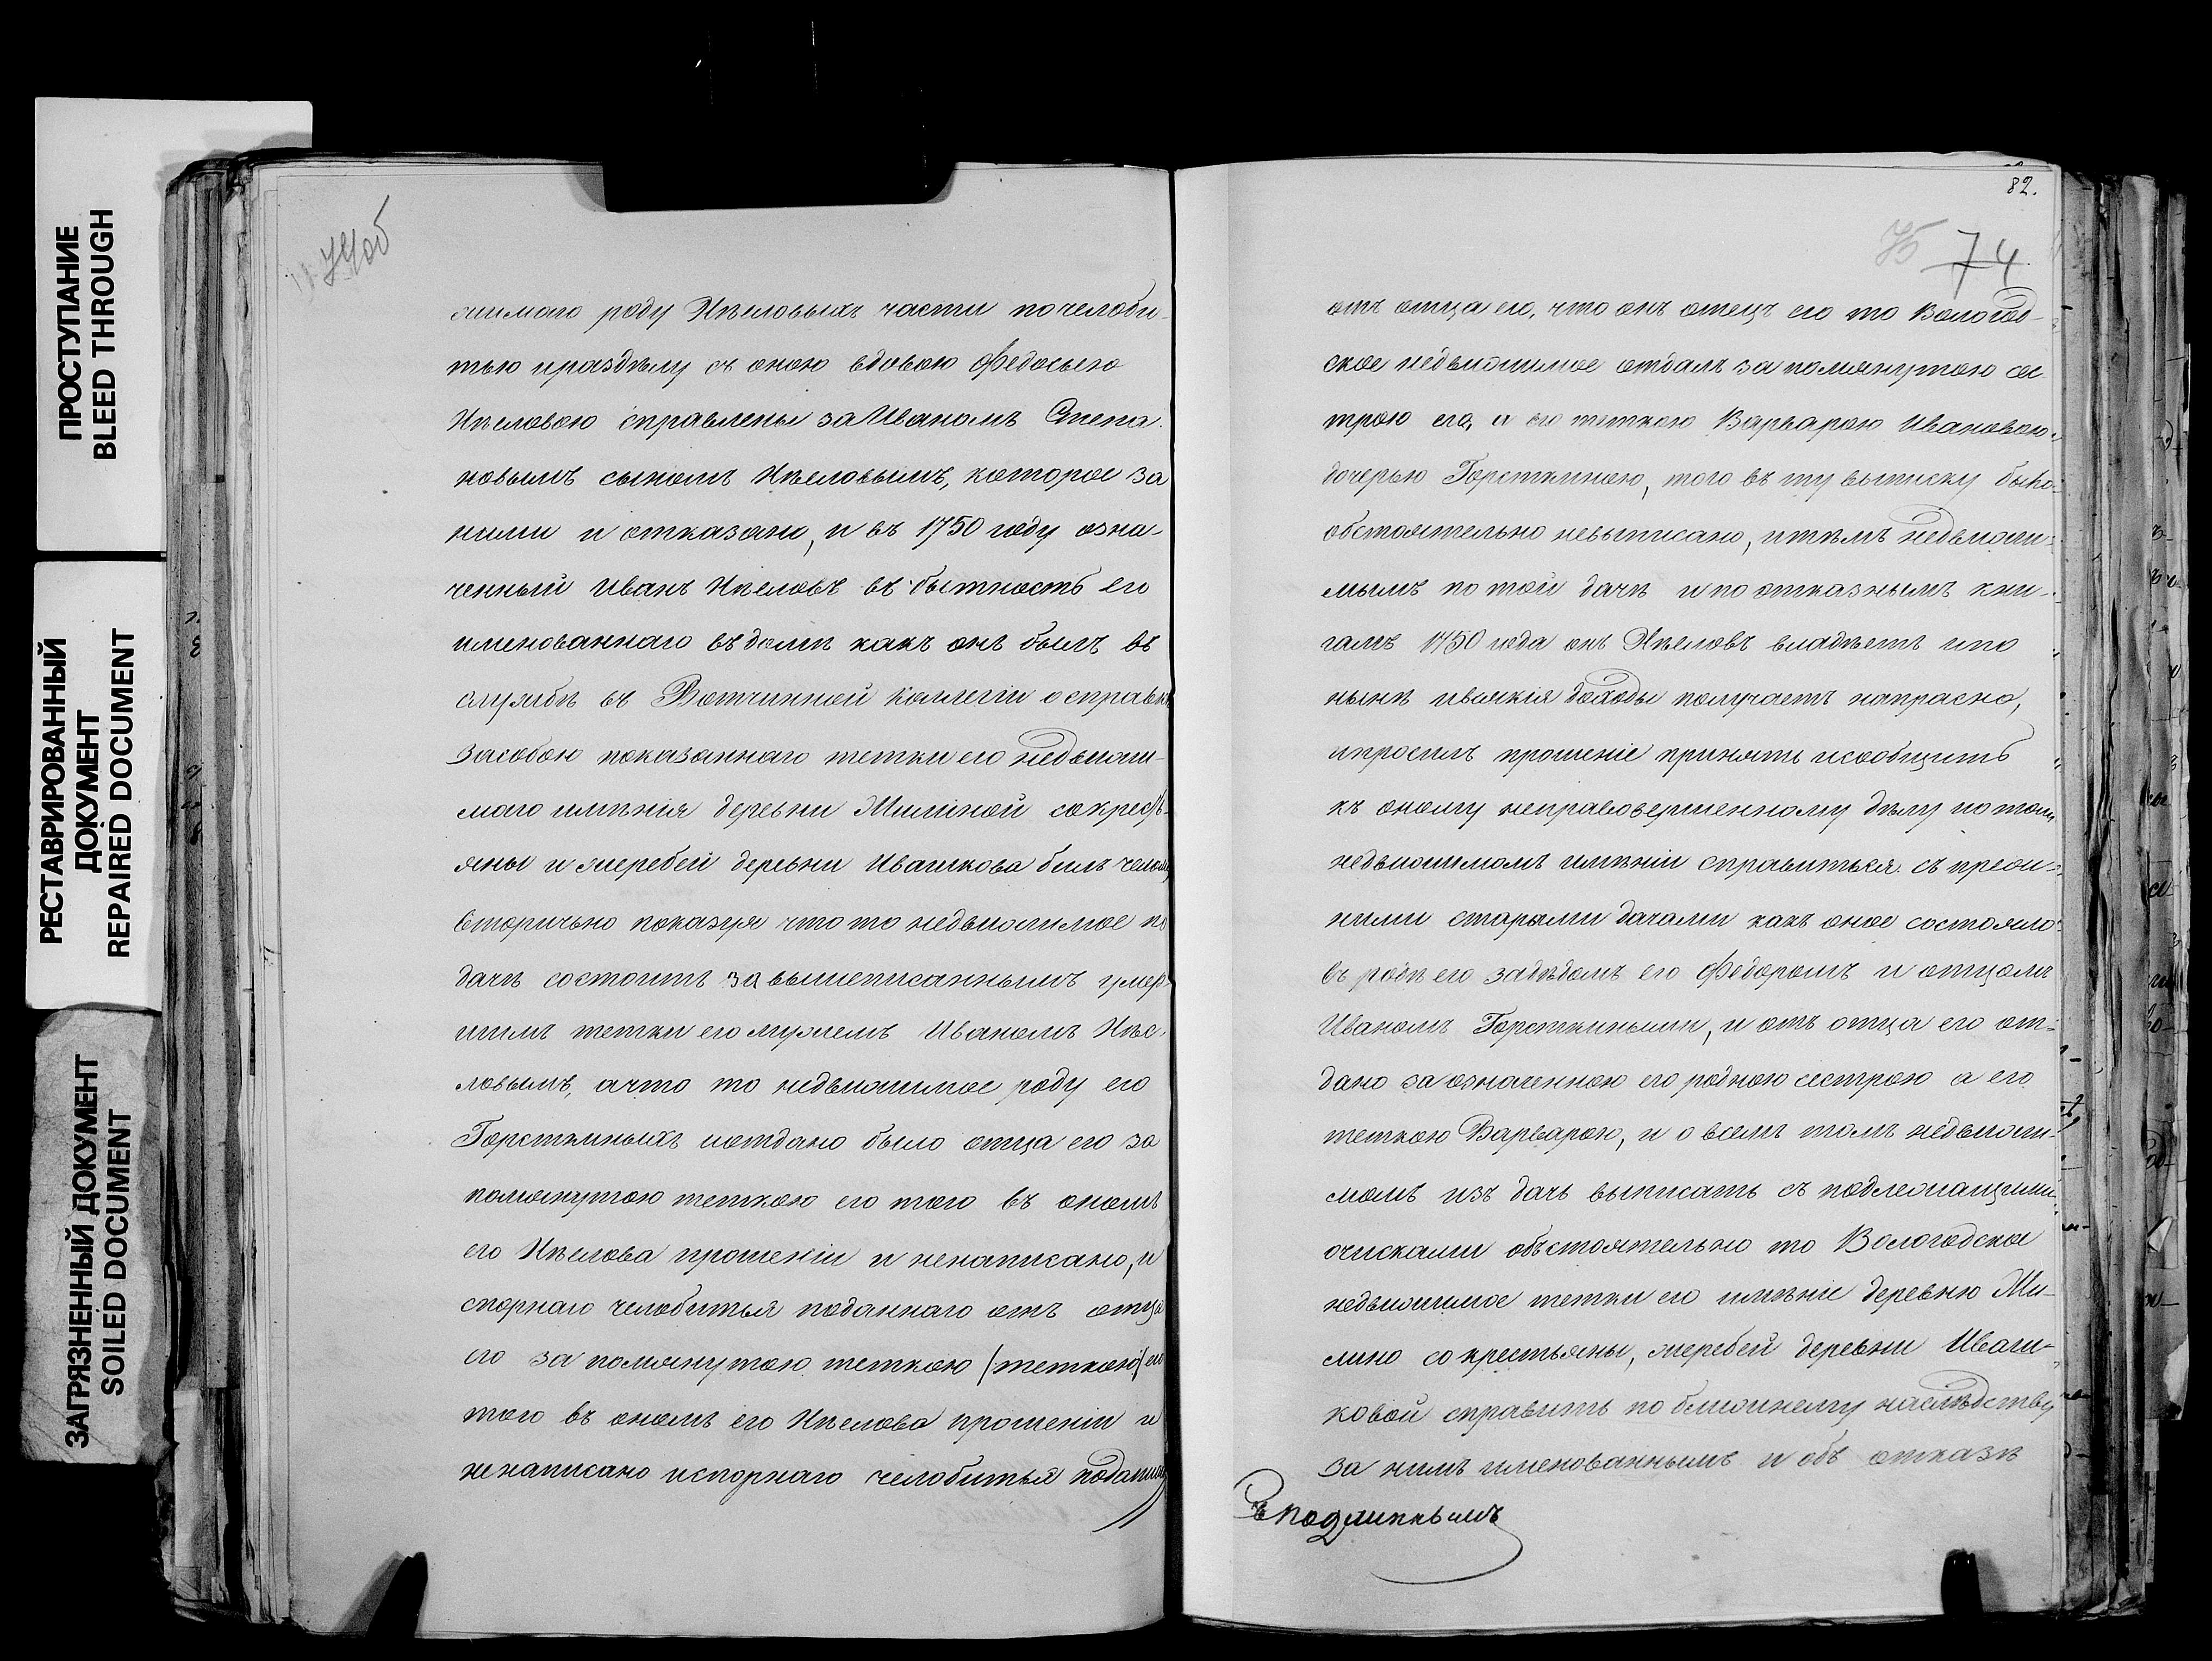 ПРОСТУПАНИЕ
BLEED THROUGH
РЕСТАВРИРОВАННЫЙ
ДОКУМЕНТ
REPAIRED DOCUMENT
ЗАГРЯЗНЕННЫЙ ДОКУМЕНТ
SOILED DOCUMENT
74об
жимаго роду Нѣеловыхъ части почелоби-
тью ираздѣлу съ оною вдовою Федосьею
Нѣеловою справлены за Иваномъ Степа-
новымъ сыномъ Нѣеловымъ, которое за
ними и отказано, и въ 1750 году озна-
ченный Иванъ Нѣеловъ въ бытность его
именованнаго въ домѣ какъ онъ былъ въ
службѣ въ Вотчинной Коллегіи о справкѣ
за собою показаннаго тетки его недвижи-
маго имѣнія деревни Милиной со кресть-
яны и жеребей деревни Ивашкова билъ челомъ
вторично показуя что то недвижимое по
дачѣ состоитъ за вышеписаннымъ умер-
шимъ тетки его мужемъ Иваномъ Нѣе-
ловымъ, а что то недвижимое роду его
Горсткиныхъ и отдано было отца его за
помянутою теткою его того въ ономъ
его Нѣелова прошеніи и ненаписано, и
спорнаго челобитья поданнаго отъ отца
его за помянутою теткою (теткою) его
того въ ономъ его Нѣелова прошеніи и
ненаписано и спорнаго челобитья поданнаго
82.
75 74
отъ отца его, что онъ отецъ его то Вологод-
ское недвижимое отдалъ за помянутою сес-
трою его, а его теткою Варварою Ивановою
дочерью Горсткиною, того въ ту выписку было
обстоятельно невыписано, и тѣмъ недвижи-
мымъ по той дачѣ и по отказнымъ кни-
гамъ 1750 года онъ Нѣеловъ владѣетъ и по
нынѣ и всякія доходы получаетъ напрасно,
и просилъ прошеніе принять и сообщить
къ оному неправовершенному дѣлу и о томъ
недвижимомъ имѣніи справиться съ преж-
ними старыми дачами какъ оное состояло
въ родѣ его за дѣдомъ его Федоромъ и отцомъ
Иваномъ Горсткиными, и отъ отца его от-
дано за означенною его родною сестрою а его
теткою Варварою, и о всемъ томъ недвижи-
момъ изъ дачъ выписать съ подлежащими
очисками объстоятельно то Вологодское
недвижимое тетки его имѣніе деревню Ми-
лино со крестьяны, жеребей деревни Иваш-
ковой справить по ближнему наслѣдству
за нимъ именованнымъ и объ отказѣ
Съ подлиннымъ